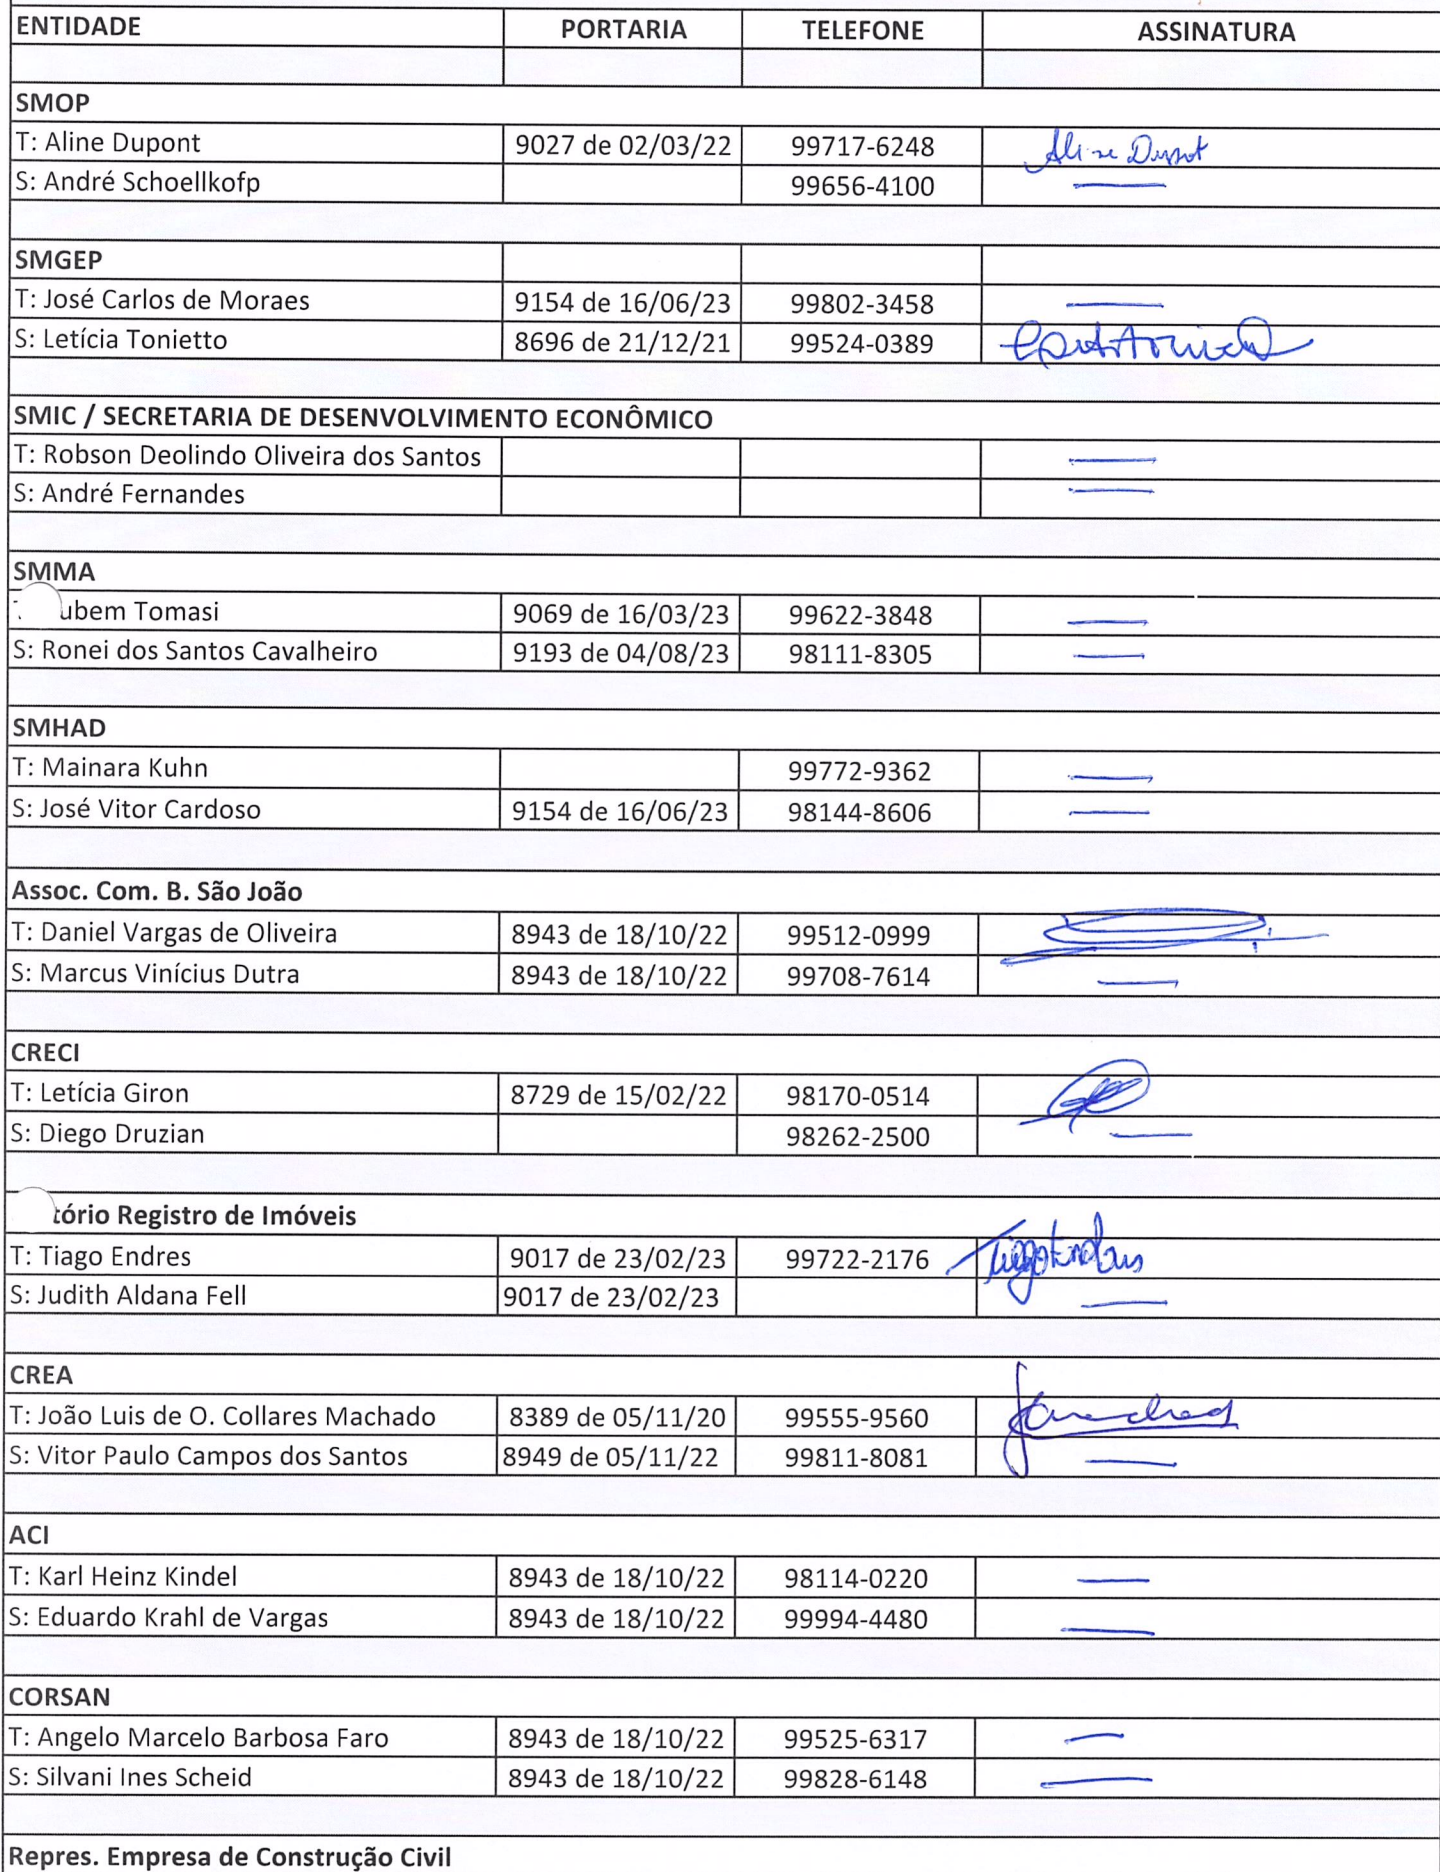 ENTIDADE PORTARIA TELEFONE ASSINATURA
SMOP
T: Aline Dupont 9027 de 02/03/22 99717-6248 Aline Dupont
S: André Schoellkofp 99656-4100
SMGEP
T: José Carlos de Moraes 9154 de 16/06/23 99802-3458
S: Letícia Tonietto 8696 de 21/12/21 99524-0389
SMIC / SECRETARIA DE DESENVOLVIMENTO ECONÔMICO
T: Robson Deolindo Oliveira dos Santos
S: André Fernandes
SMMA
ubem Tomasi 9069 de 16/03/23 99622-3848
S: Ronei dos Santos Cavalheiro 9193 de 04/08/23 98111-8305
SMHAD
T: Mainara Kuhn 99772-9362
S: José Vitor Cardoso 9154 de 16/06/23 98144-8606
Assoc. Com. B. São João
T: Daniel Vargas de Oliveira 8943 de 18/10/22 99512-0999
S: Marcus Vinícius Dutra 8943 de 18/10/22 99708-7614
CRECI
T: Letícia Giron 8729 de 15/02/22 98170-0514
S: Diego Druzian 98262-2500
tório Registro de Imóveis
T: Tiago Endres 9017 de 23/02/23 99722-2176 Tiago Endres
S: Judith Aldana Fell 9017 de 23/02/23
CREA
T: João Luis de O. Collares Machado 8389 de 05/11/20 99555-9560
S: Vitor Paulo Campos dos Santos 8949 de 05/11/22 99811-8081
ACI
T: Karl Heinz Kindel 8943 de 18/10/22 98114-0220
S: Eduardo Krahl de Vargas 8943 de 18/10/22 99994-4480
CORSAN
T: Angelo Marcelo Barbosa Faro 8943 de 18/10/22 99525-6317
S: Silvani Ines Scheid 8943 de 18/10/22 99828-6148
Repres. Empresa de Construção Civil